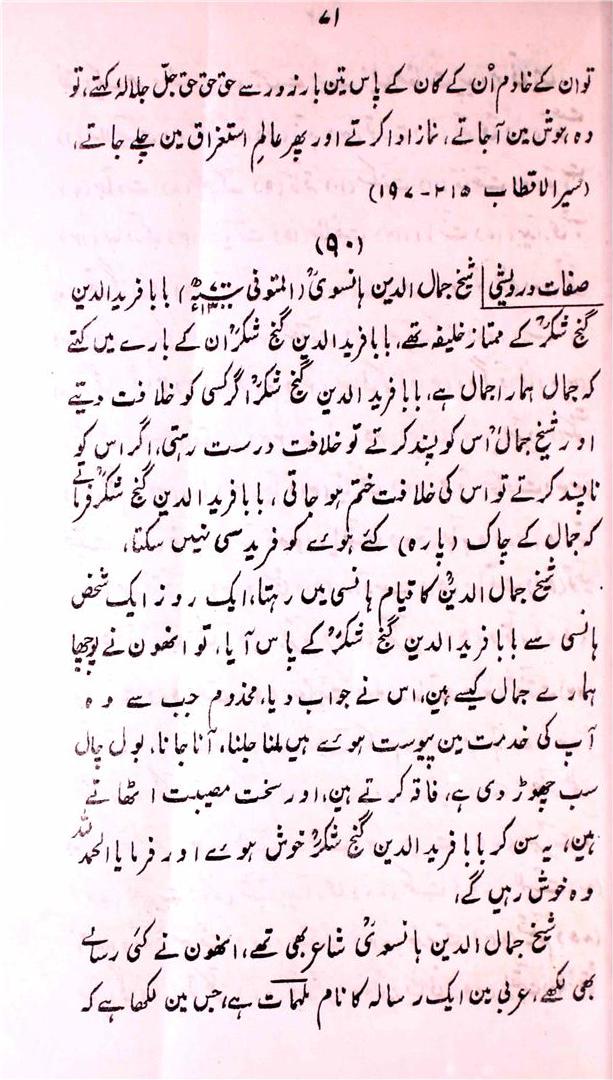 ۷۱
تو ان کے خادم اُن کے کان کے پاس تین بار زور سے حق حق حق جلّ جلالہٗ کہتے، تو
وہ ہوش مین آجاتے، نماز ادا کرتے اور پھر عالمِ استغراق مین چلے جاتے،
(سیر الاقطاب ۲۱۵-۱۹۷)
(۹۰)
صفات درویشی شیخ جمال الدین ہانسویؒ (المتوفی) بابا فرید الدین
گنج شکرؒ کے ممتاز خلیفہ تھے، بابا فرید الدین گنج شکرؒ ان کے بارے میں کہتے
کہ جمال ہمارا جمال ہے، بابا فرید الدین گنج شکرؒ اگر کسی کو خلافت دیتے
اور شیخ جمالؒ اس کو پسند کرتے تو خلافت درست رہتی، اگر اس کو
ناپسند کرتے تو اس کی خلافت ختم ہو جاتی، بابا فرید الدین گنج شکرؒ فرماتے
کہ جمال کے چاک (پارہ) کئے ہوے کو فرید سی نہیں سکتا،
شیخ جمال الدینؒ کا قیام ہانسی میں رہتا، ایک روز ایک شخص
ہانسی سے بابا فرید الدین گنج شکرؒ کے پاس آیا، تو انھون نے پوچھا
ہمارے جمال کیسے ہین، اس نے جواب دیا، مخدوم جب سے وہ
آپ کی خدمت مین پیوست ہوے ہیں ملنا جلنا، آنا جانا، بول چال
سب چھوڑ دی ہے، فاقہ کرتے ہین، اور سخت مصیبت اٹھاتے
ہین، یہ سن کر بابا فرید الدین گنج شکرؒ خوش ہوے اور فرمایا الحمد للہ
وہ خوش رہیں گے،
شیخ جمال الدین ہانسویؒ شاعر بھی تھے، انھون نے کئی رسالے
بھی لکھے، عربی مین ایک رسالہ کا نام ملہمات ہے، جس مین لکھا ہے کہ